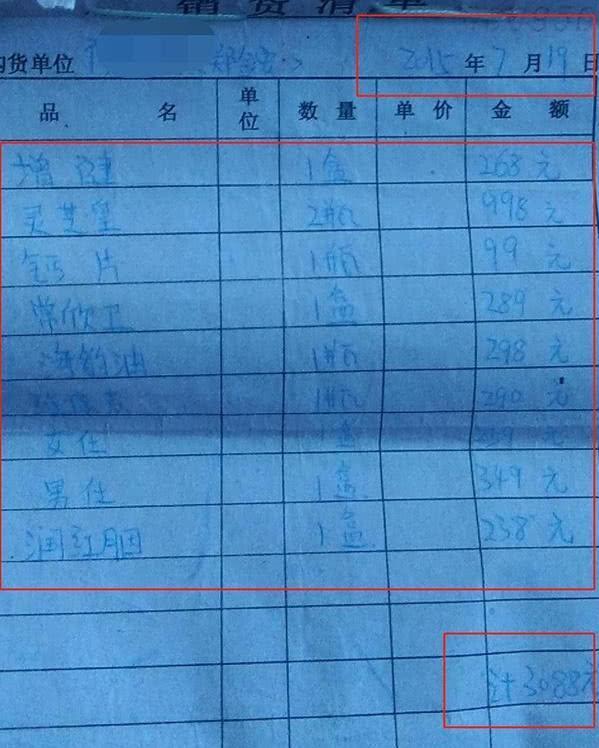 销货清单
购货单位 2015年7月19日
品 名 单位 数量 单价 金额
增健 1盒 268元
灵芝皇 2瓶 998元
钙片 1瓶 99元
常欣卫 1盒 289元
海豹油 1瓶 298元
1瓶 290元
女仕 1盒 259元
男仕 1盒 349元
润红胭 1盒 238元
计3088元